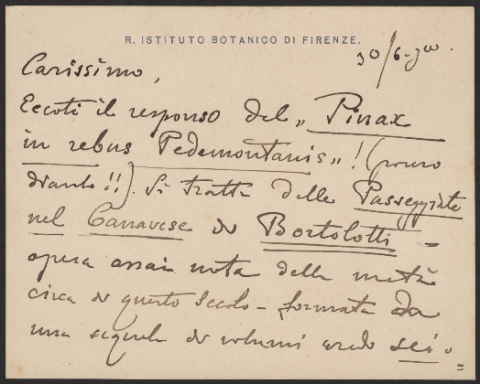 R. ISTITUTO BOTANICO DI FIRENZE.
30/6-900.
Carissimo,
Eccoti il responso del „Pinax
in rebus Pedemontanis"! (
!!). Si tratta delle Passeggiate
nel Canavese di Bertolotti -
opera assai nota della metà
circa di questo secolo - formata da
una sequela di volumi credo sei o